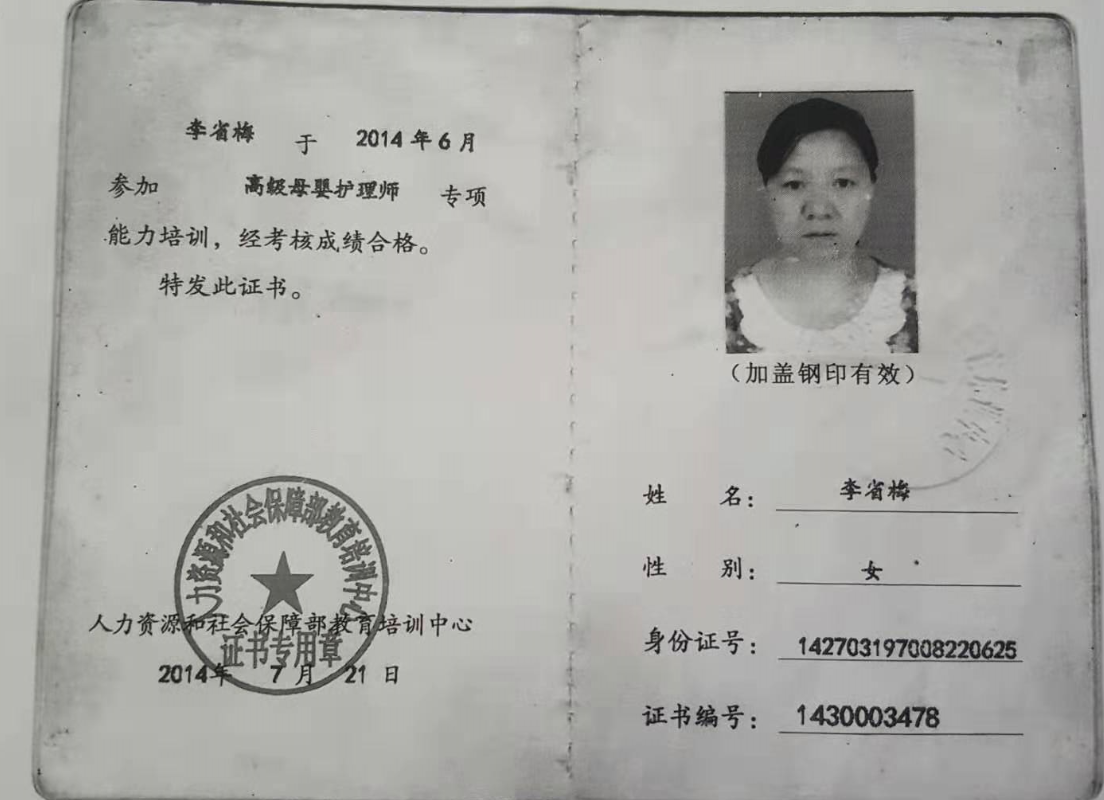 李省梅 于 2014年6月
参加 高级母婴护理师 专项
能力培训，经考核成绩合格。
特发此证书。
人力资源和社会保障部教育培训中心
证书专用章
人力资源和社会保障部教育培训中心
2014年 7月 21日
（加盖钢印有效）
姓 名： 李省梅
性 别： 女
身份证号： 142703197008220625
证书编号： 1430003478